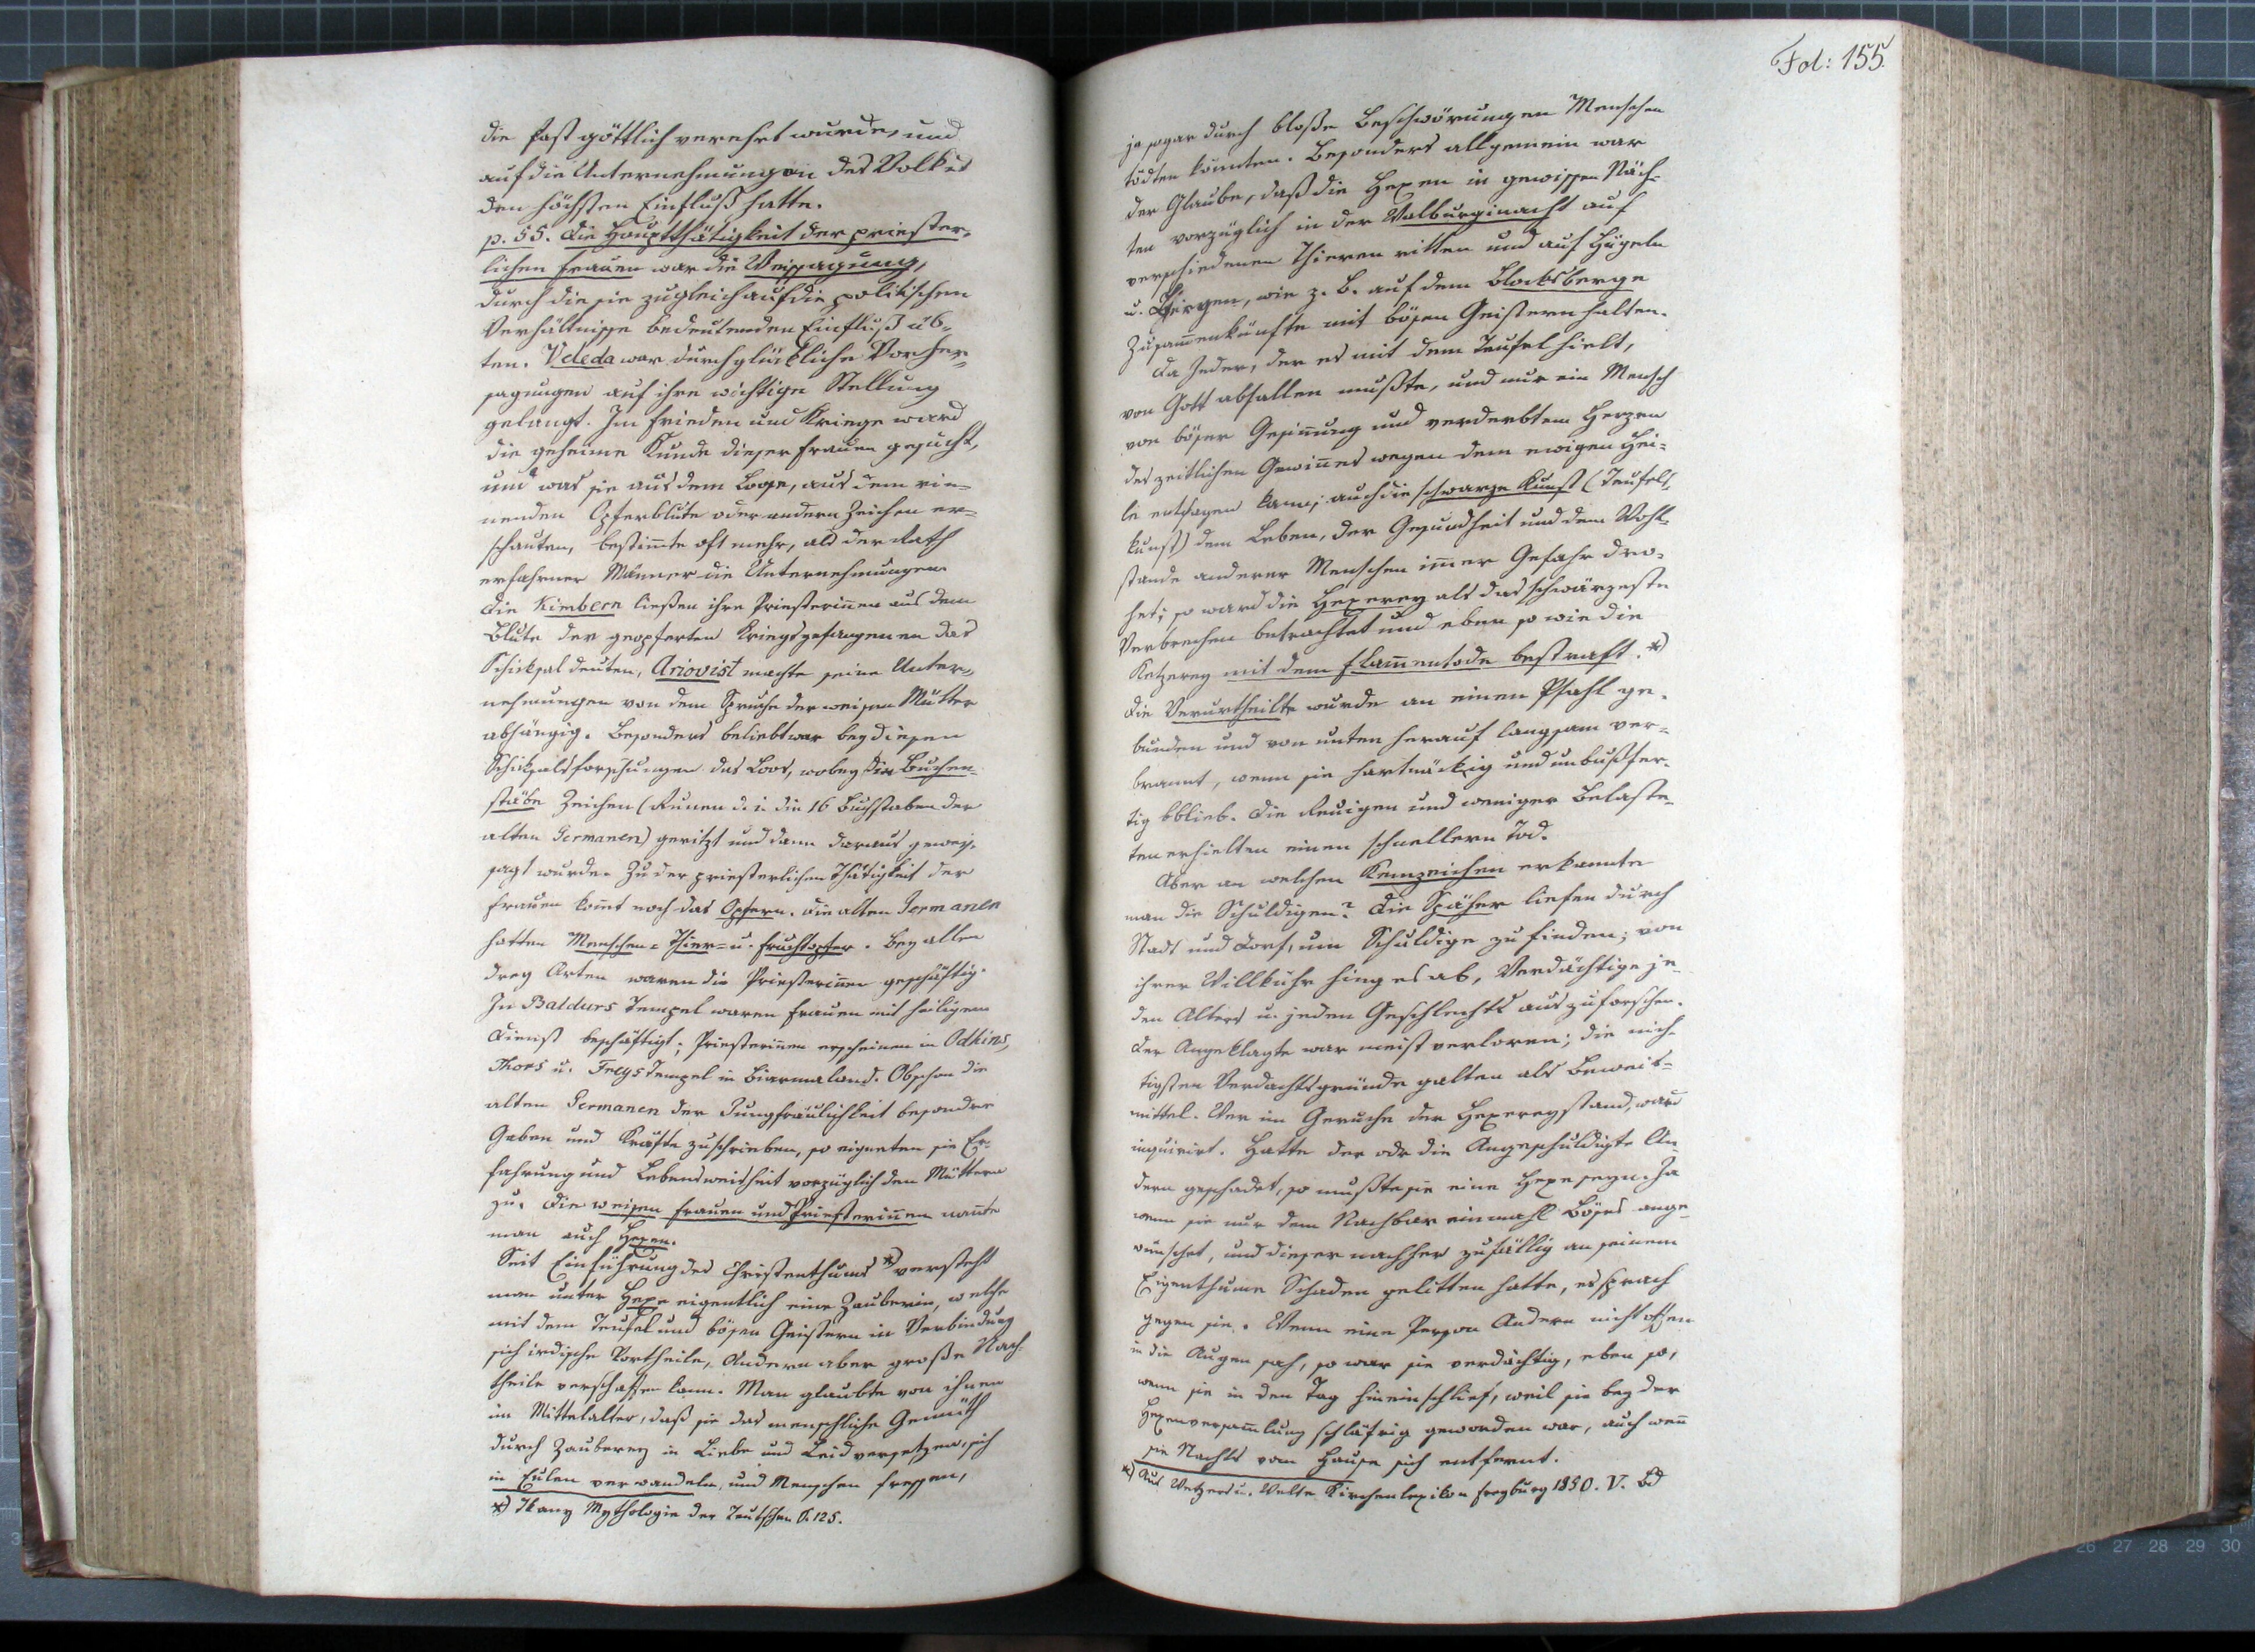 die fast göttlich verehrt wurde, und
auf die Unternehmungen des Volkes
den höchsten Einfluß hatte.
p. 55. Die Hauptthätigkeit der priester-
lichen Frauen war die Weissagung,
durch die sie zugleich auf die politischen
Verhältnisse bedeutenden Einfluß üb-
ten. Veleda war durch glückliche Vorher-
sagungen auf ihre wichtige Stellung
gelangt. Im Frieden und Kriege ward
die geheime Kunde dieser Frauen gesucht,
und was sie aus dem Loose, aus dem rin-
nenden Opferblute oder andern Zeichen er-
schauten, bestim̅te oft mehr, als der Rath
erfahrner Männer die Unternehmungen
Die Kimbern ließen ihre Priesterin̅en aus dem
Blute der geopferten Kriegsgefangenen das
Schicksal deuten, Ariovist machte seine Unter-
nehmungen von dem Spruche der weisen Mütter
abhängig. Besonders beliebt war bey diesen
Schicksalsforschungen das Loos, wobey in Buchen-
stäbe Zeichen (Runen d. i. die 16 Buchstaben der
alten Germanen) geritzt und dann daraus geweis-
sagt wurde. Zu der priesterlichen Thätigkeit der
Frauen kom̅t noch das Opfern. Die alten Germanen
hatten Menschen- Thier- u. Fruchtopfer. Bey allen
drey Arten waren die Priesterin̅en geschäftig.
In Baldurs Tempel waren Frauen mit heiligem
Dienst beschäftigt; Priesterin̅en erscheinen in Odhins,
Thors u. Freys Tempel in Biarmaland. Obschon die
alten Germanen der Jungfräulichkeit besondre
Gaben und Kräfte zuschrieben, so eigneten sie Er-
fahrung und Lebensweisheit vorzüglich den Müttern
zu. Die weisen Frauen und Priesterin̅en nan̅te
man auch Hexen.
Seit Einführung des Christenthums *) versteht
man unter Hexe eigentlich eine Zauberin, welche
mit dem Teufel und bösen Geistern in Verbindung
sich irdische Vortheile, Andern aber große Nach-
theile verschaffen kann. Man glaubte von ihnen
im Mittelalter, daß sie das menschliche Gemüth
durch Zauberey in Liebe und Leid versetzen, sich
in Eulen verwandeln, und Menschen fressen,
*) Mythologie der Teutschen S. 125.
Fol: 155.
ja sogar durch bloße Beschwörungen Menschen
tödten könnten. Besonders allgemein war
der Glaube, daß die Hexen in gewissen Näch-
ten vorzüglich in der Walburginacht auf
verschiedenen Thieren ritten und auf Hügeln
u. Bergen, wie z. B. auf dem Blocksberge
Zusam̅enkünfte mit bösen Geistern halten.
Da Jeder, der es mit dem Teufel hielt,
von Gott abfallen mußte, und nur ein Mensch
von böser Gesin̅ung und verderbtem Herzen
des zeitlichen Gewin̅es wegen dem ewigen Hei-
le entsagen kann; auch die schwarze Kunst (Teufels-
kunst) dem Leben, der Gesundheit und dem Wohl-
stande anderer Menschen im̅er Gefahr dro-
het; so ward die Hexerey als das schwärzeste
Verbrechen betrachtet und eben so wie die
Ketzerey mit dem Flam̅entode bestraft. *)
Die Verurtheilte wurde an einen Pfahl ge-
bunden und von unten herauf langsam ver-
brannt, wenn sie hartnäckig und unbußfer-
tig bblieb. Die Reuigen und weniger Belaste-
ten erhielten einen schnellern Tod.
Aber an welchen Kennzeichen erkannte
man die Schuldigen? Die Späher liefen durch
Stadt und Dorf, um Schuldige zu finden; von
ihrer Willkühr hing es ab, Verdächtige je-
den Alters u. jeden Geschlechts auszuforschen.
Der Angeklagte war meist verloren; die nich-
tigsten Verdachtsgründe galten als Beweis-
mittel. Wer im Geruche der Hexerey stand, ward
inquirirt. Hatte der odr die Angeschuldigte An-
dern geschadet, so mußte sie eine Hexe seyn. Ja
wenn sie nur dem Nachbar einmahl Böses ange-
wünscht, und dieser nachher zufällig an seinem
Eigenthume Schaden gelitten hatte, es sprach
gegen sie. Wenn eine Person Andern nicht offen
in die Augen sah, so war sie verdächtig, eben so,
wenn sie in den Tag hineinschlief, weil sie bey der
Hexenversam̅lung schläfrig geworden war, auch wen̅
sie Nachts vom Hause sich entfernt.
*) Aus Wetzers u. Welte Kirchenlexikon Freyburg 1850. V. Bd